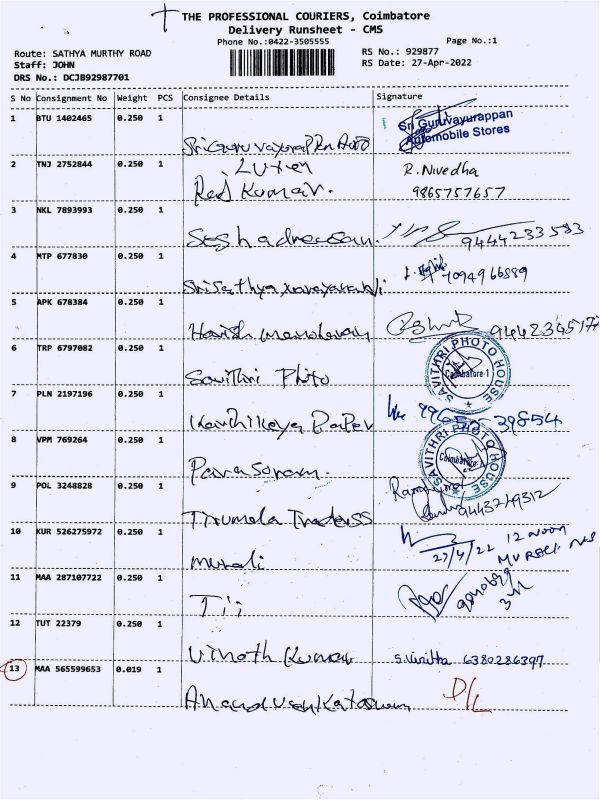 THE PROFESSIONAL COURIERS, Coimbatore
Delivery Runsheet - CMS
Phone No.:0422-3505555
Page No.:1
Route: SATHYA MURTHY ROAD
Staff: JOHN
DRS No.: DCJB92987701
RS No.: 929877
RS Date: 27-Apr-2022
S No Consignment No Weight PCS Consignee Details Signature
1 BTU 1402465 0.250 1
Sri Guruvayurappan
Automobile Stores
2 TNJ 2752844 0.250 1
Kumar.
R. Nivedha
9865757657
3 NKL 7893993 0.250 1
9444233583
4 MTP 677830 0.250 1
7094966889
5 APK 678384 0.250 1
Harish
6 TRP 6797082 0.250 1
Savithri Photo
SAVITHRI PHOTO HOUSE
Coimbatore-1
7 PLN 2197196 0.250 1
Karthikeya Paper
8 VPM 769264 0.250 1
SAVITHRI PHOTO HOUSE
Coimbatore-1
9 POL 3248828 0.250 1
Tirumala Traderss
10 KUR 526275972 0.250 1
Murali
27/4/22
12 noon
11 MAA 287107722 0.250 1
12 TUT 22379 0.250 1
Vinoth Kumar
6380286397
13 MAA 565599653 0.019 1
D/L